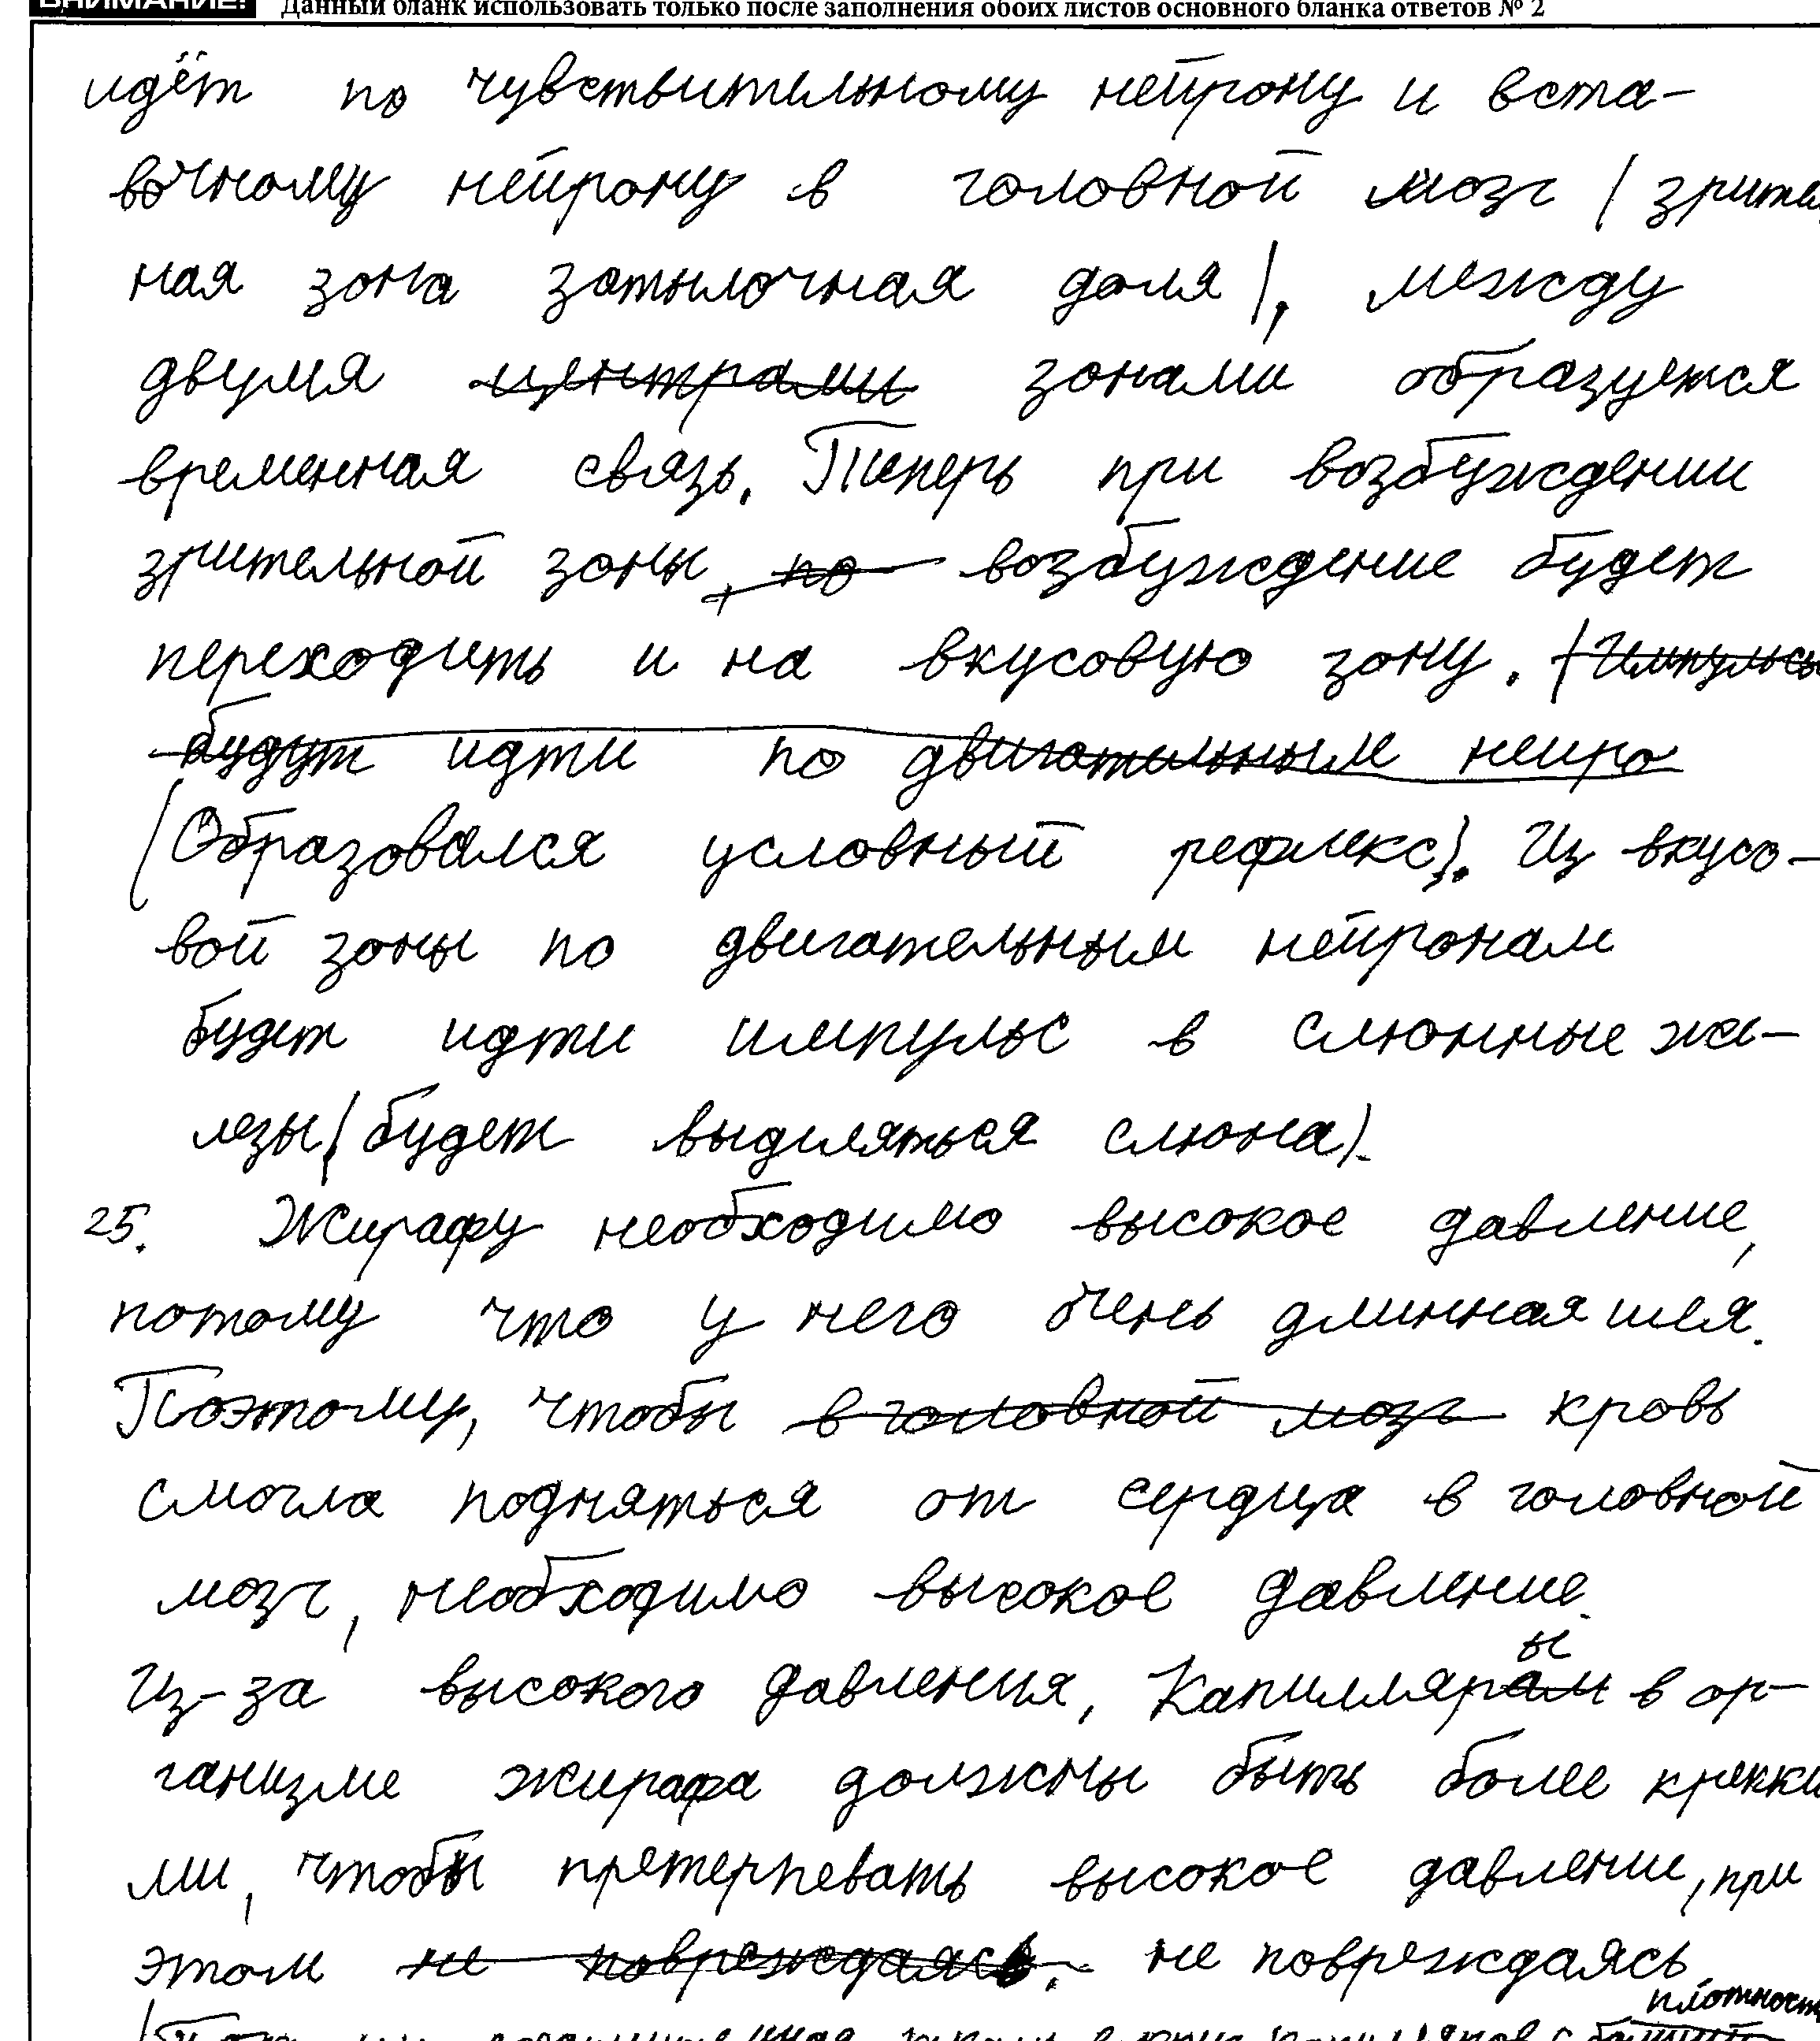 ВНИМАНИЕ! Данный бланк использовать только после заполнения обоих листов основного бланка ответов № 2
идёт по чувствительному нейрону и вста-
вочному нейрону в головной мозг (зрител
ная зона затылочная доля), между
двумя центрами зонами образуется
временная связь. Теперь при возбуждении
зрительной зоны, по возбуждение будет
переходить и на вкусовую зону. (Импульсы
будут идти по двигательным нейро
(Образовался условный рефлекс). Из вкусо-
вой зоны по двигательным нейронам
будет идти импульс в слюнные же-
лезы (будет выделяться слюна).
25. Жирафу необходимо высокое давление,
потому что у него очень длинная шея.
Поэтому, чтобы в головной мозг кровь
смогла подняться от сердца в головной
мозг, необходимо высокое давление.
ы
Из-за высокого давления, капиллярам в ор-
ганизме жирафа должны быть более крепки
ми, чтобы претерпевать высокое давление, при
этом не повреждаясь. не повреждаясь
плотность